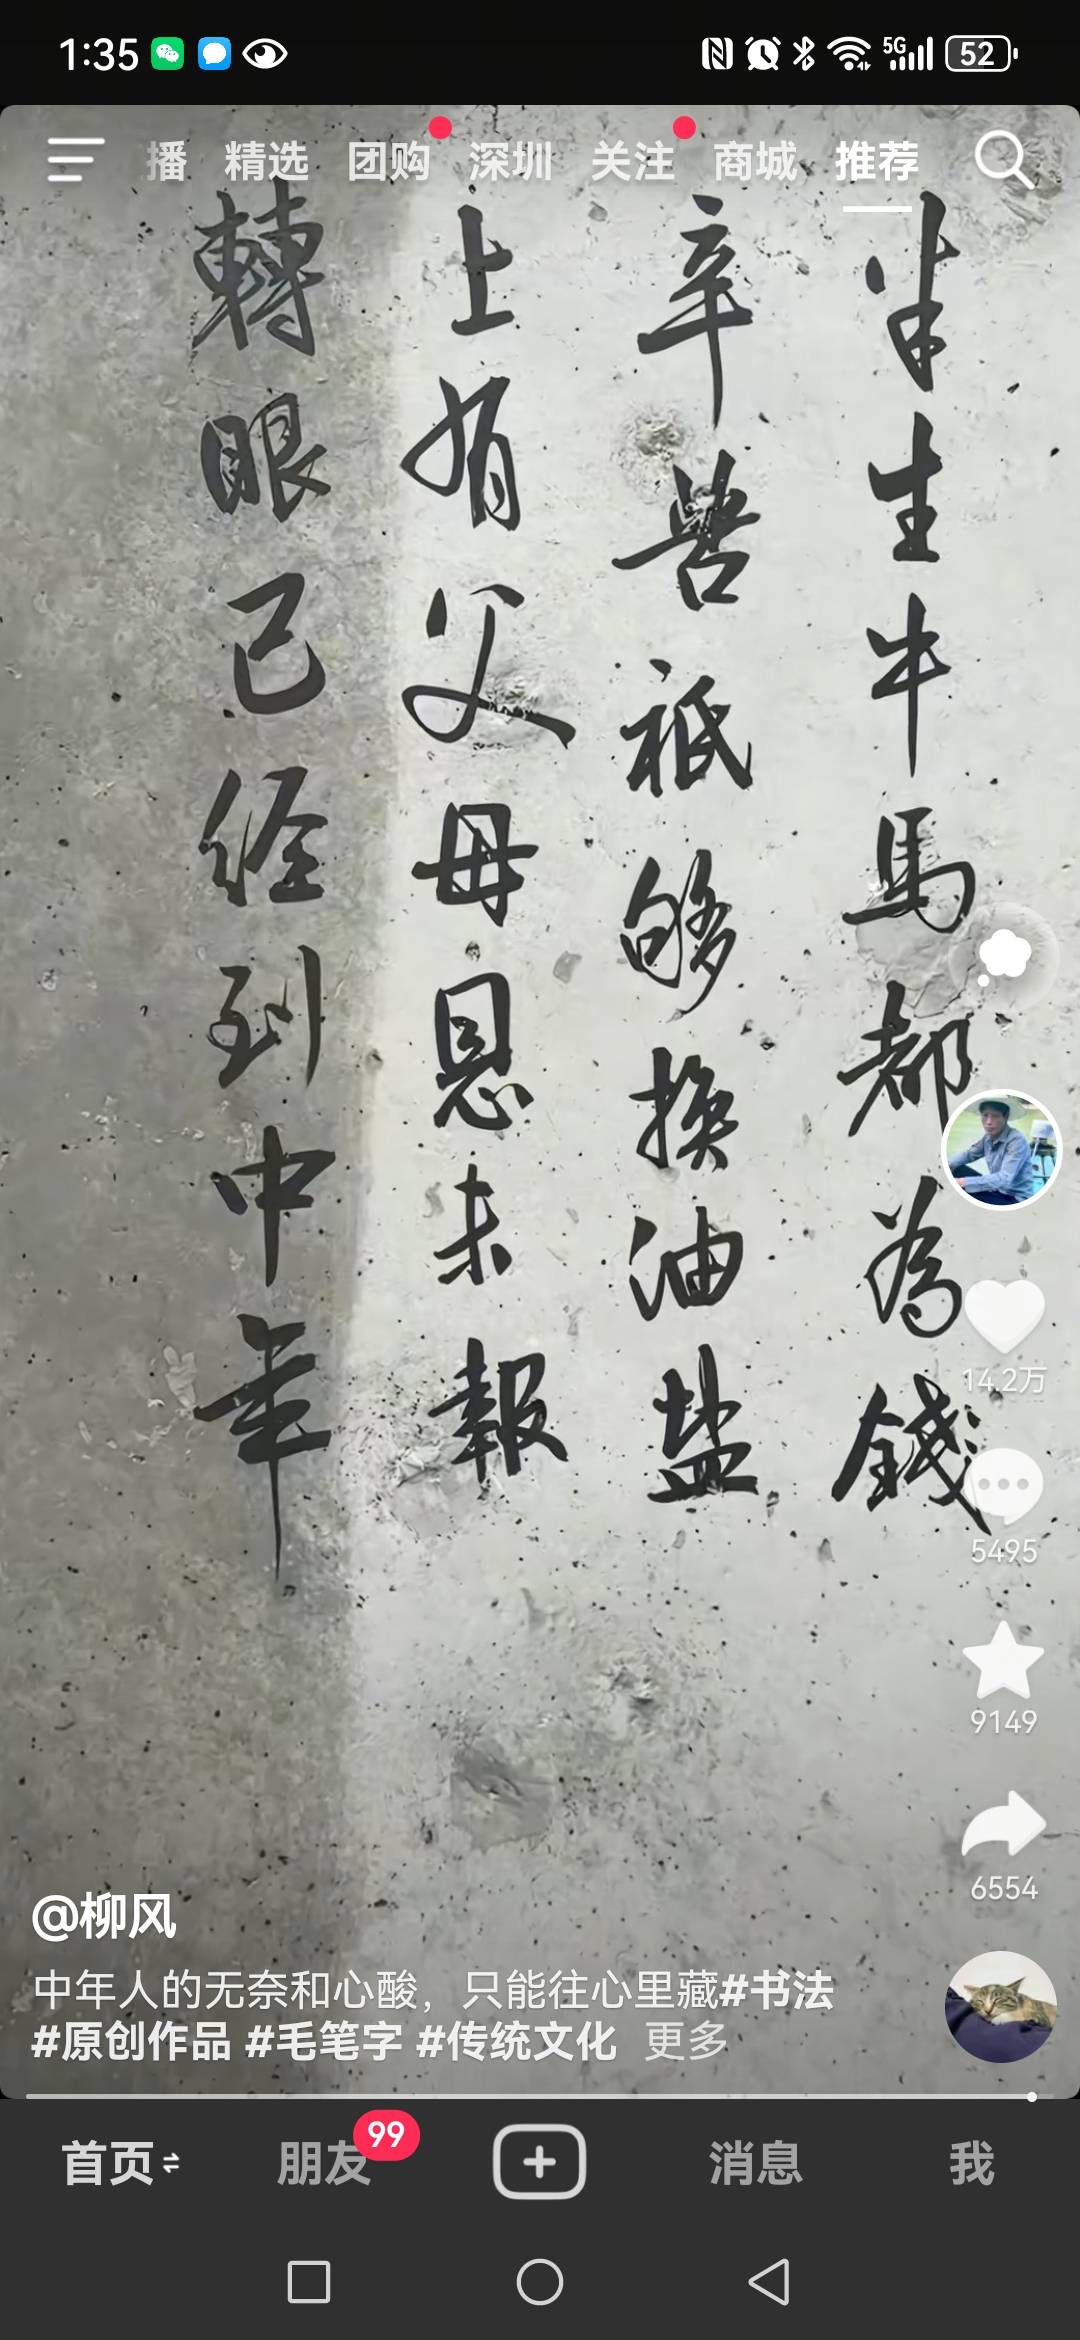 1:35
5G
52
播 精选 团购 深圳 关注 商城 推荐
半生牛馬都為錢
辛苦祗够換油盐
上有父母恩未報
轉眼已经到中年
14.2万
5495
9149
6554
@柳风
中年人的无奈和心酸，只能往心里藏#书法
#原创作品 #毛笔字 #传统文化 更多
首页 朋友 99 消息 我